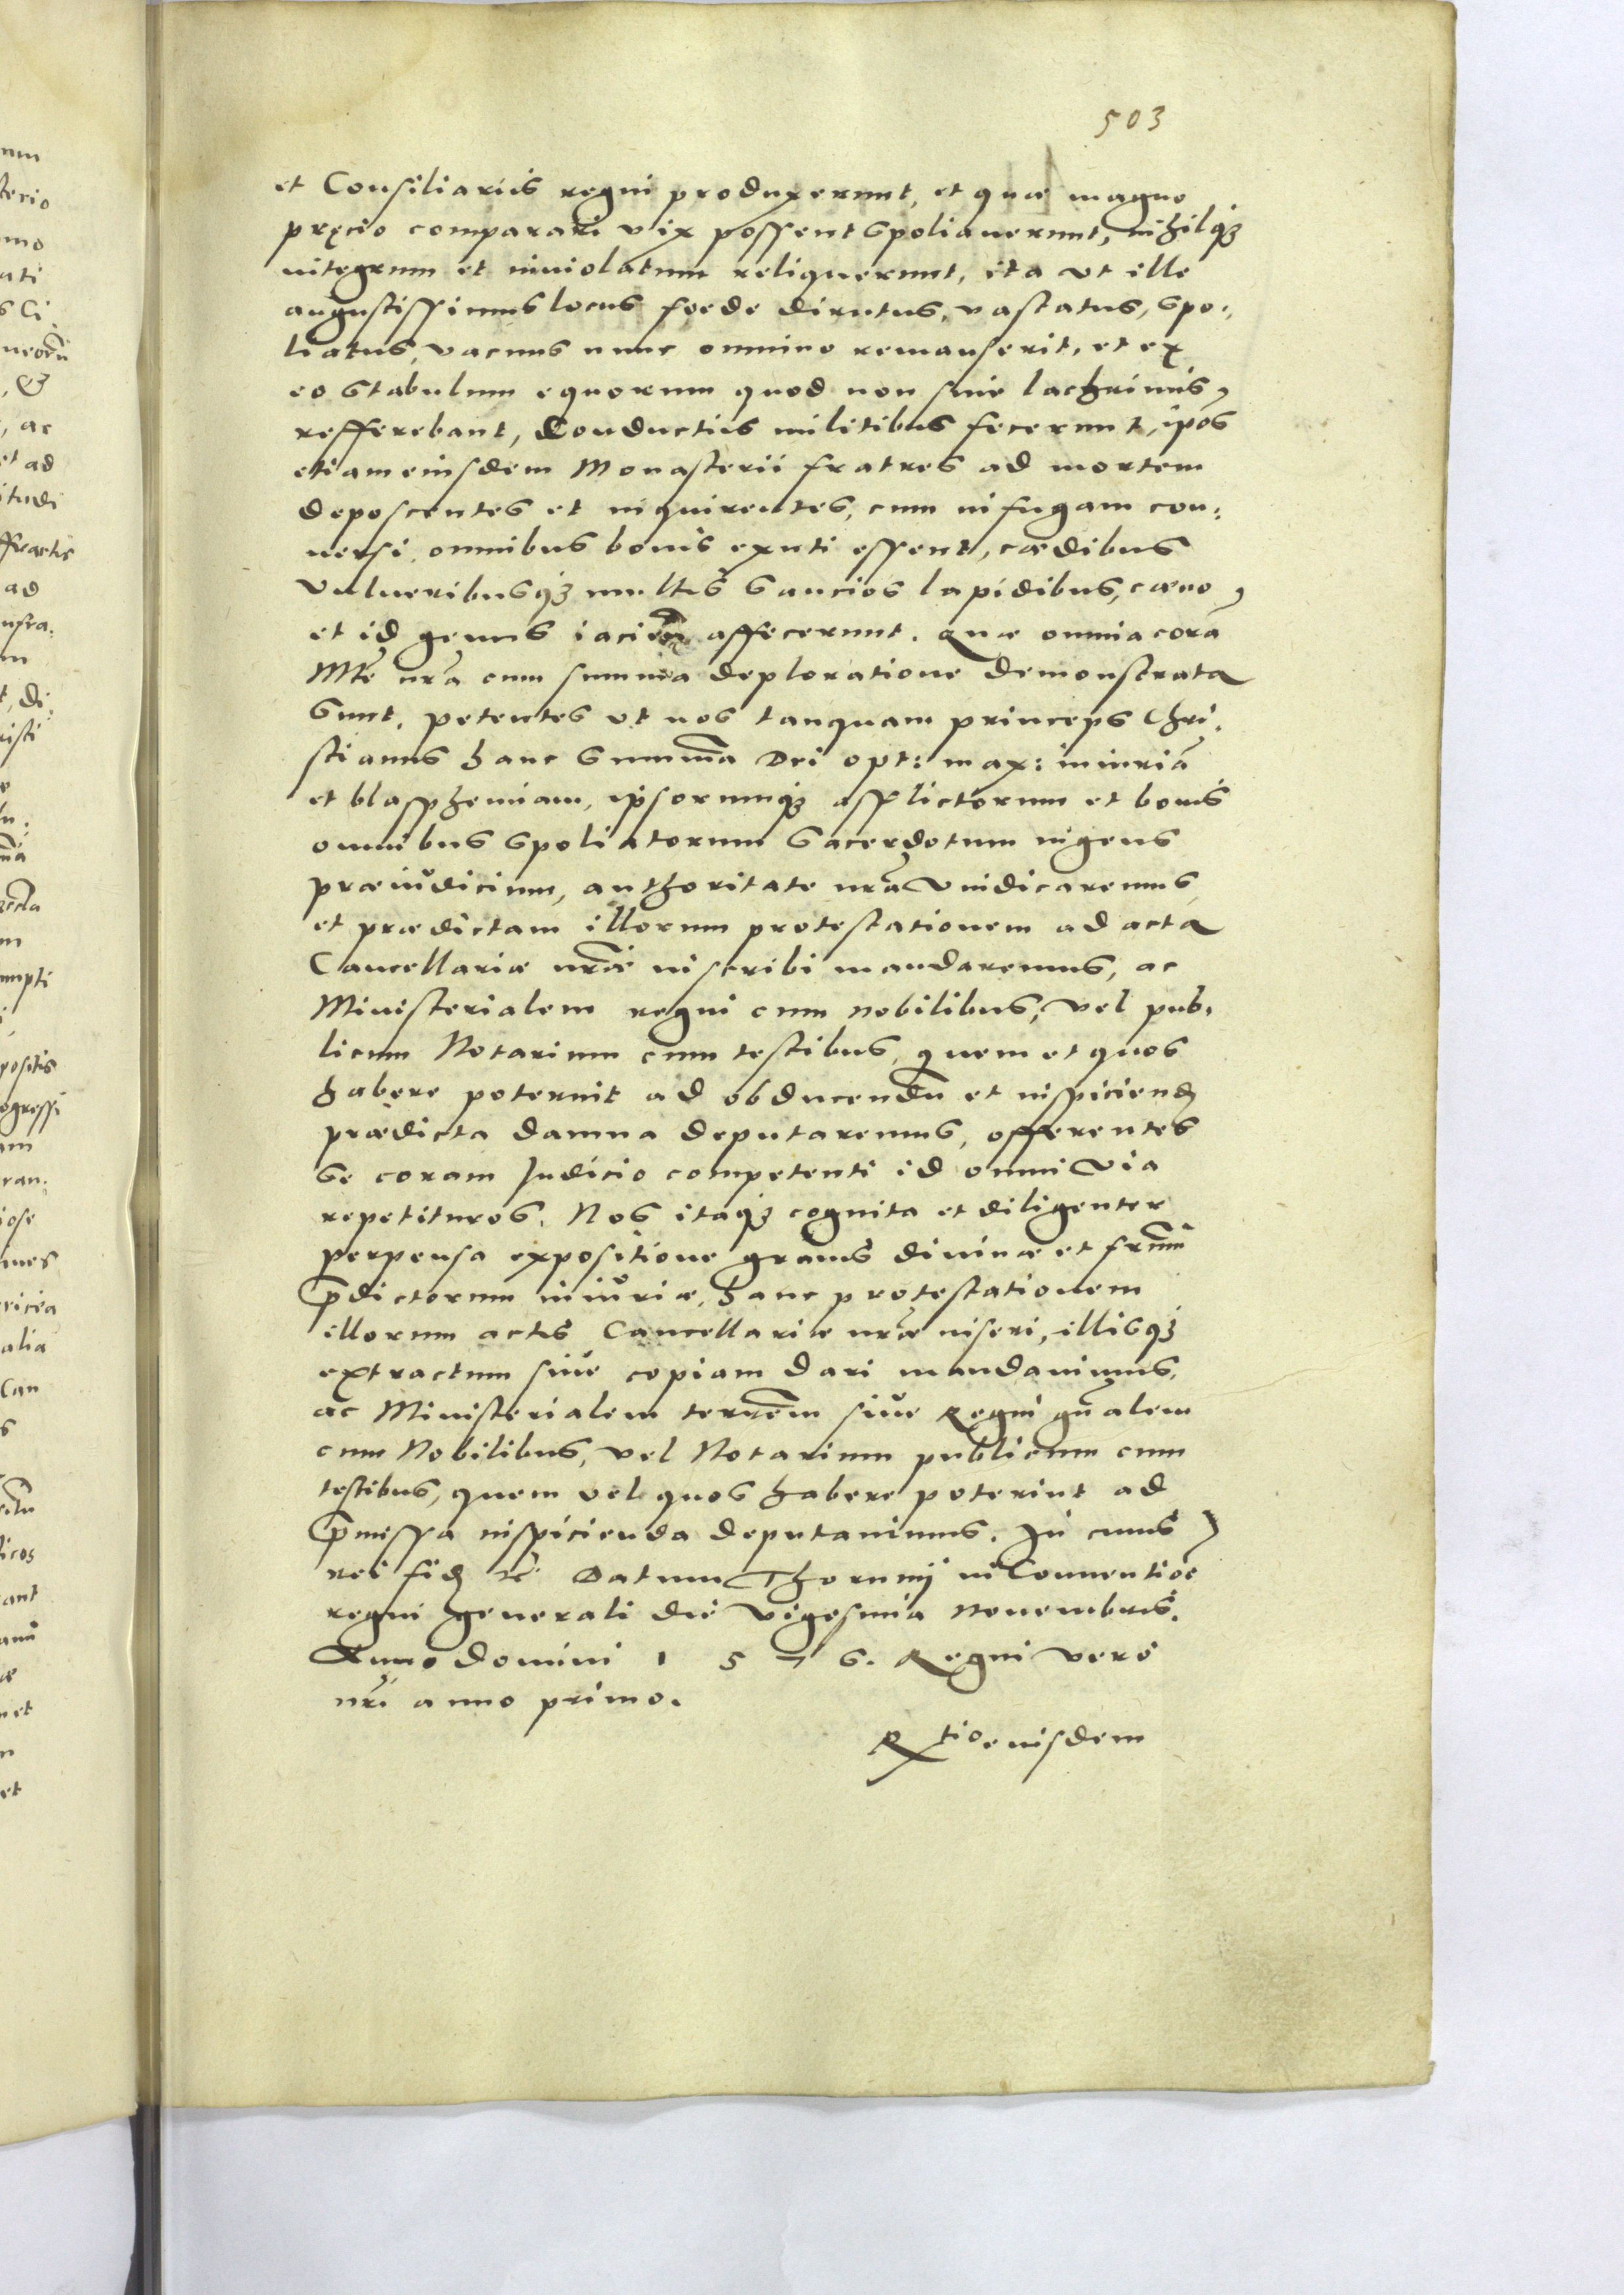 503
et Consiliariis regni produxerunt, et quæ magno
pręcio comparari vix possent spoliauerunt, nihilq3
integrum et inuiolatum reliquerunt, ita vt ille
augustissimus locus foede dirutus, vastatus, spo:
liatus, vacuus nunc omnino remanserit, et ex
eo stabulum equorum quod non sine lachrimis,
refferebant, Conductis militibus fecerunt, ipos
etiam eiusdem Monasterii fratres ad mortem
deposcentes et inquirentes, cum in fugam con:
uersi, omnibus bonis exuti essent, cædibus
vulneribusq3 multis saucios lapidibus, cæno,
et id genus affecerunt. Quæ omnia corā
Mte nrā cum summa deploratione demonstrata
sunt, petentes vt nos tanquam princeps Chri,
stianus hanc summā Dei opt: max: iniuriā
et blasphemiam, ipsorumq3 afflictorum et bonis
omnibus spoliatorum sacerdotum ingens
præiudicium, authoritate nrā vindicaremus,
et prædictam illorum protestationem ad acta
Cancellariæ nræ inscribi mandaremus, ac
Ministerialem regni cum nobilibus, vel pub,
licum Notarium cum testibus, quem et quos
habere poterint ad obducendū et inspiciend
prædicta damna deputaremus, offerentes
se coram Judicio competenti id omni via
repetituros. Nos itaq3 cognita et diligenter
perpensa expositione grauis diuinæ et frūm
p̄dictorum iniuriæ, hanc protestationem
illorum actis Cancellariæ nræ inseri, illisq3
extractum siue copiam dari mandauimus,
ac Ministerialem terrēm siue Regni gnālem
cum Nobilibus, vel Notarium publicum cum
testibus, quem vel quos habere poterint ad
p̄missa inspicienda deputauimus. In cuius
rei fid etc Datum Thorunij in Conuentioe
regni generali die vigesima Nouembris.
Anno domini 1576. Regni vero
nri anno primo.
Rtio eiusdem